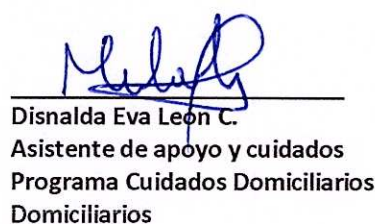 Disnalda Eva León C.
Asistente de apoyo y cuidados
Programa Cuidados Domiciliarios
Domiciliarios